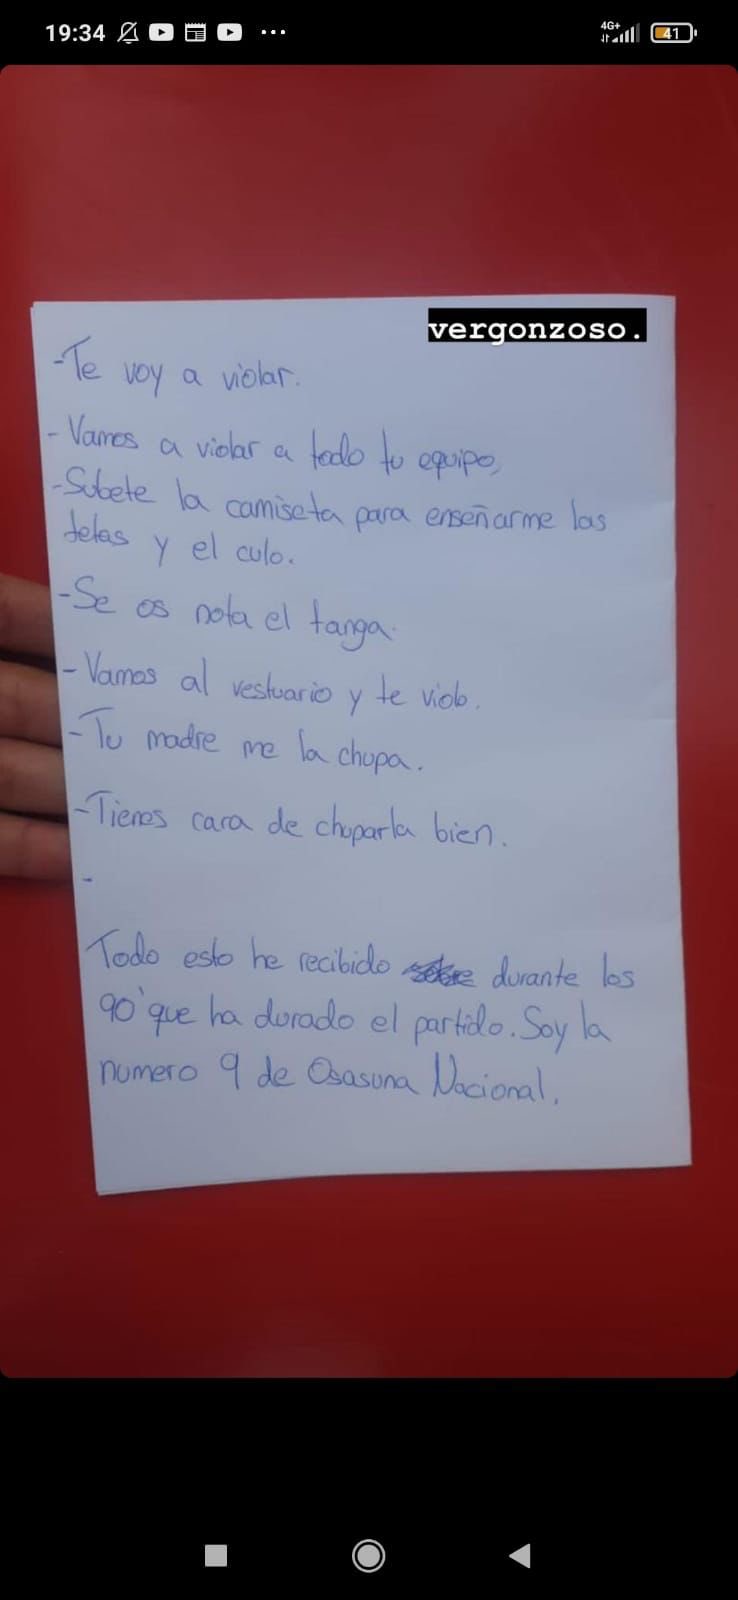 19:34
4G+
41
vergonzoso.
-Te voy a violar.
- Vamos a violar a todo tu equipo,
-Subete la camiseta para enseñarme las
tetas y el culo.
-Se os nota el tanga.
-Vamos al vestuario y te violo.
-Tu madre me la chupa.
-Tienes cara de chuparla bien.
-
Todo esto he recibido durante los
90' que ha durado el partido. Soy la
numero 9 de Osasuna Nacional.